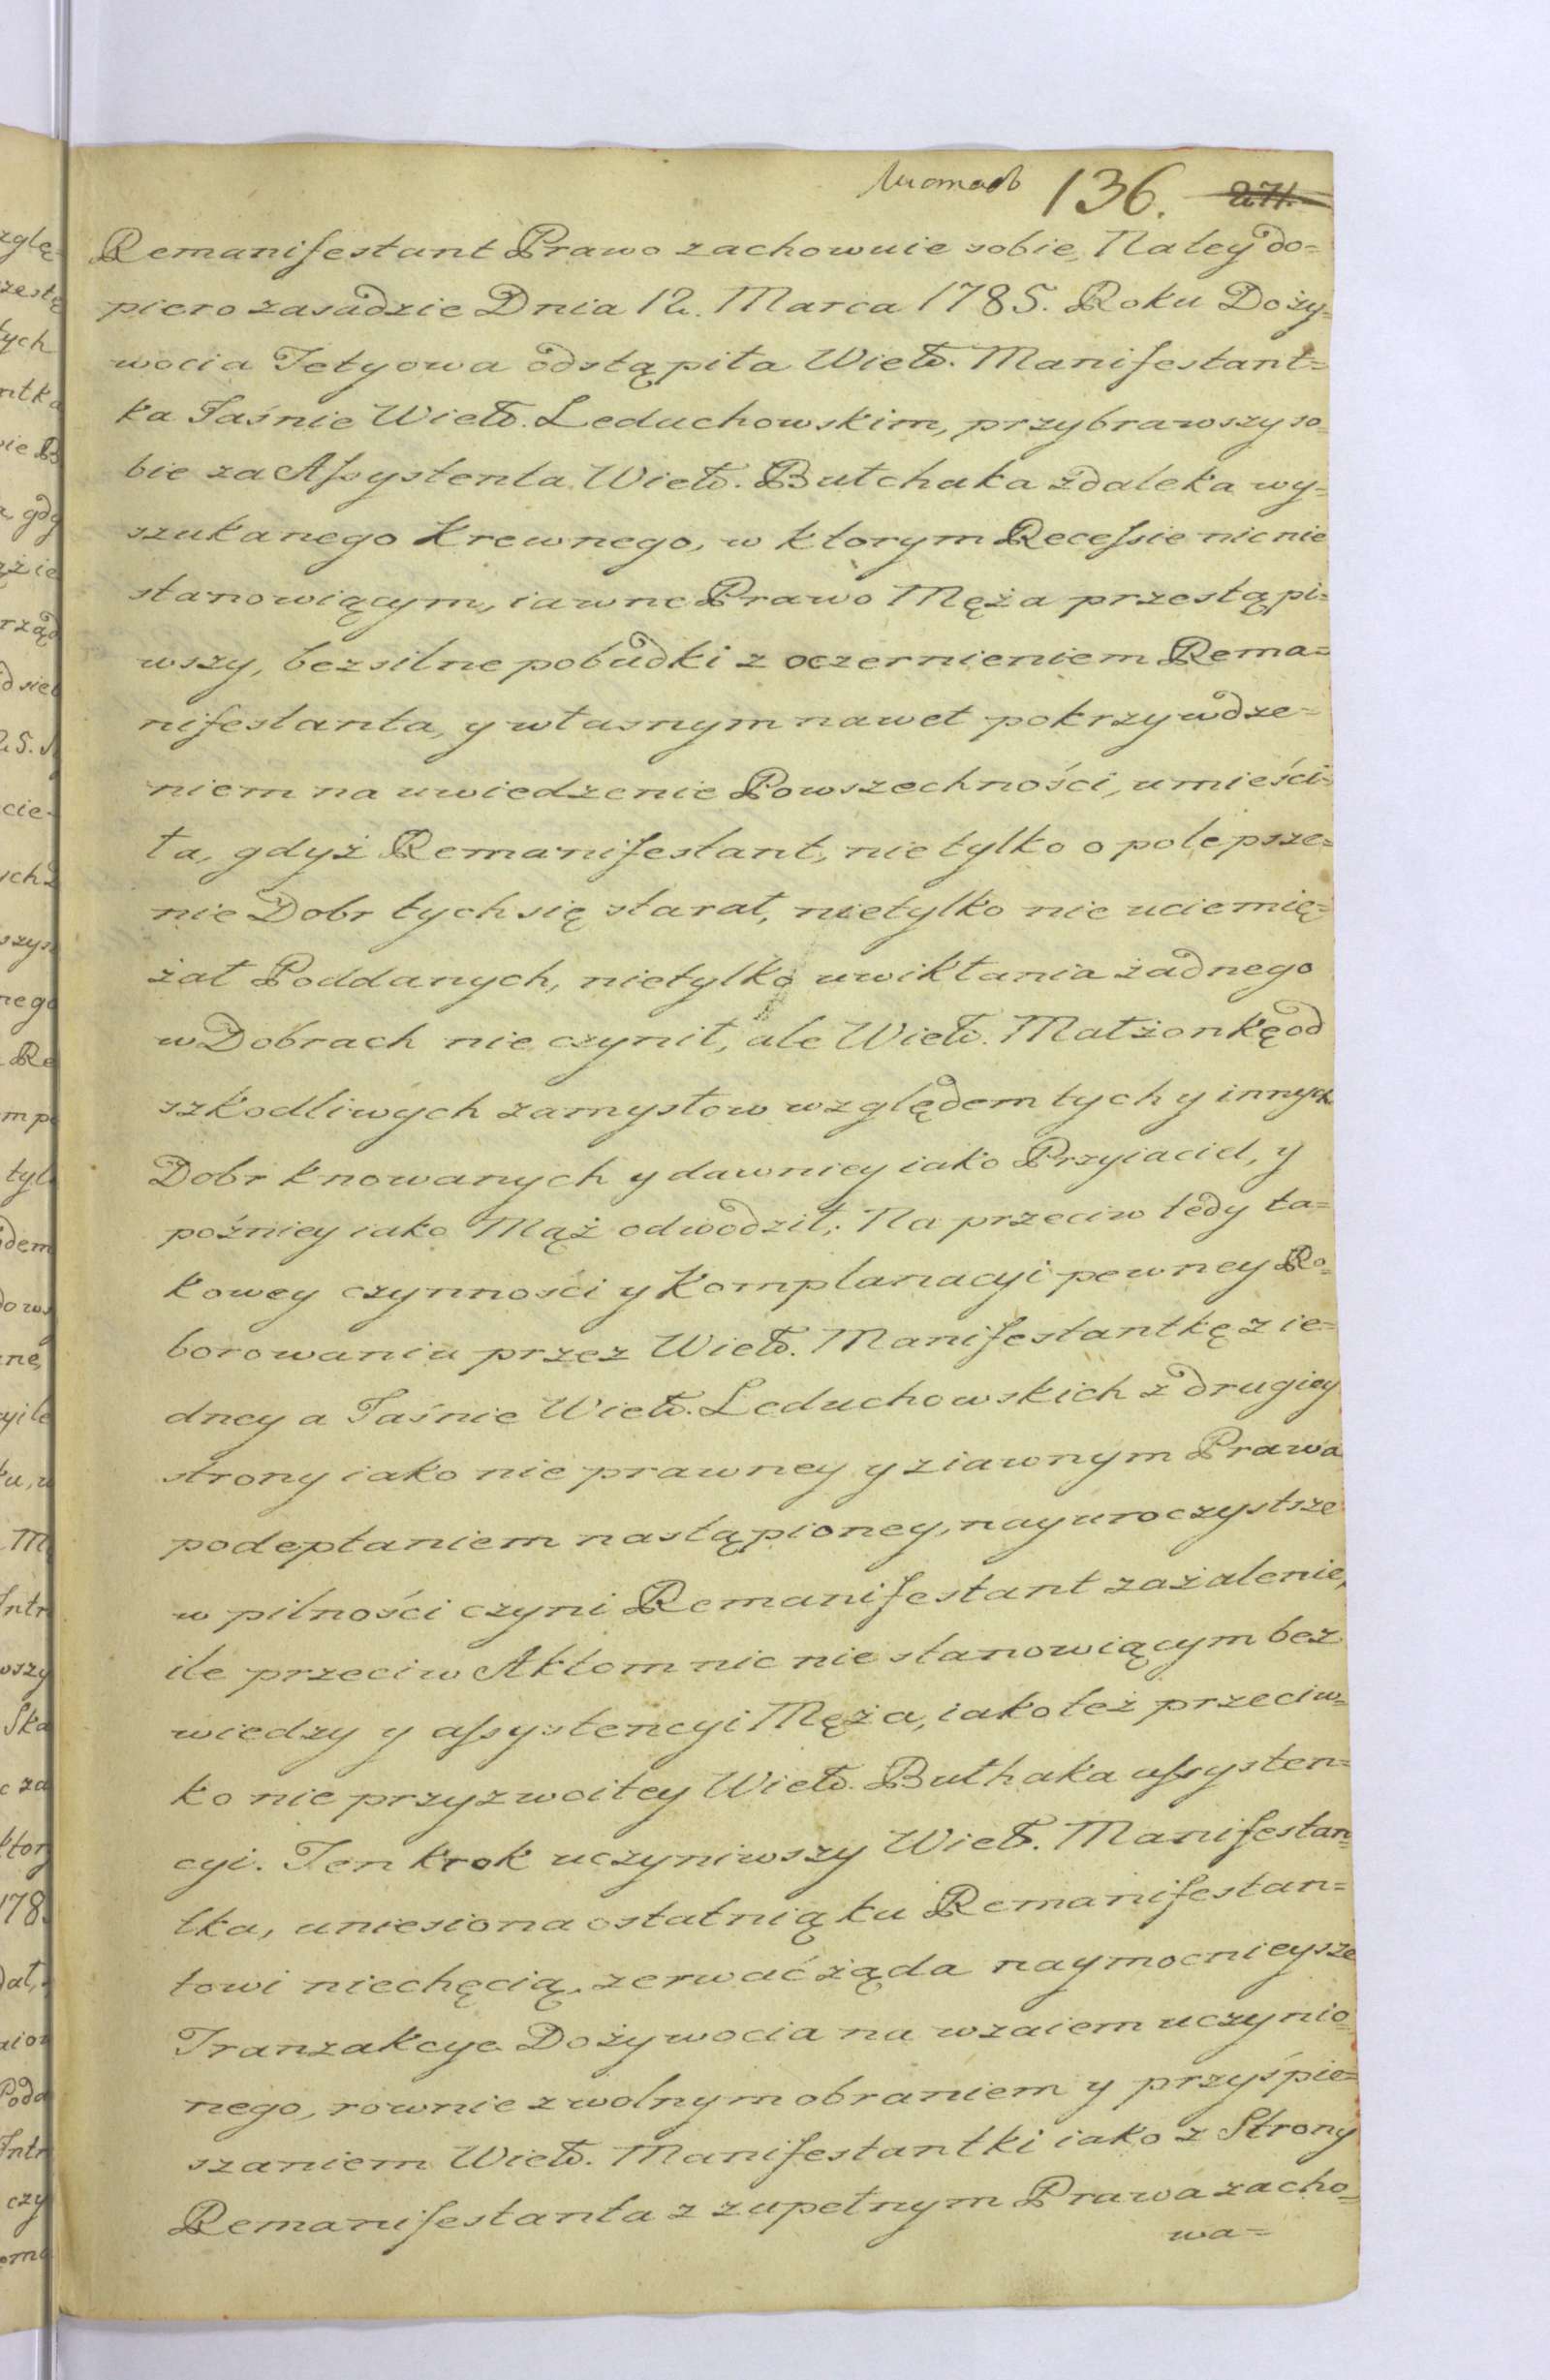 136. 271.
Remanifestant Prawo zachowuie sobie, Na tey do=
piero zasadzie Dnia 12. Marca 1785. Roku Doży=
wocia Tetyowa odstąpiła Wielb. Manifestant=
ka Jaśnie Wielb. Leduchowskim, przybrawszy so=
bie za Assystenta Wielb. Bułchaka zdaleka wy=
szukanego Krewnego, w ktorym Recessie nic nie
stanowiącym, iawne Prawo Męża przestąpi=
wszy, bezsilne pobudki z oczernieniem Rema=
nifestanta, y własnym nawet pokrzywdze=
niem na uwiedzenie Powszechności, umieści=
ła, gdyż Remanifestant, nietylko o polepsze=
nie Dobr tych się starał, nietylko nie uciemię=
żał Poddanych, nietylko uwikłania żadnego
w Dobrach nie czynił, ale Wielb. Małżonkę od
szkodliwych zamysłow względem tych y innych
Dobr knowanych y dawniey iako Przyiaciel, y
poźniey iako Mąż odwodził; Na przeciw tedy ta=
kowey czynności y Komplanacyi pewney Ro=
borowaniu przez Wielb. Manifestantkę z ie=
dney a Jaśnie Wielb. Leduchowskich z drugiey
strony iako nie prawney y ziawnym Prawa
podeptaniem nastąpioney, nayuroczystsze
w pilności czyni Remanifestant zażalenie,
ile przeciw Aktom nic nie stanowiącym bez
wiedzy y assystencyi Męża, iako też przeciw=
ko nie przyzwoitey Wielb. Bułhaka assysten=
cyi. Ten krok uczyniwszy Wielb. Manifestan=
tka, uniesiona ostatnią ku Remanifestan=
towi niechęcią, zerwać żąda naymocnieysze
Tranzakcye Dożywocia na wzaiem uczynio=
nego, rownie z wolnym obraniem y przyśpie=
szaniem Wielb. Manifestantki iako z Strony
Remanifestanta z zupełnym Prawa zacho=
wa=